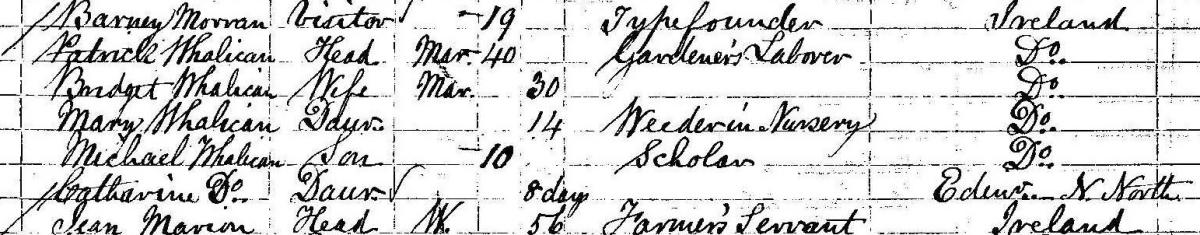 Barney Morvan Visitor 19 Typefounder Ireland
Patrick Whalican Head Mar. 40 Gardener's Laborer Do.
Bridget Whalican Wife Mar. 30 Do.
Mary Whalican Daur. 14 Weeder in Nursery Do.
Michael Whalican Son 10 Scholar Do.
Catharine Do. Daur. 8 days Edinr. N. North
Jean Marion Head W. 56 Farmer's Servant Ireland